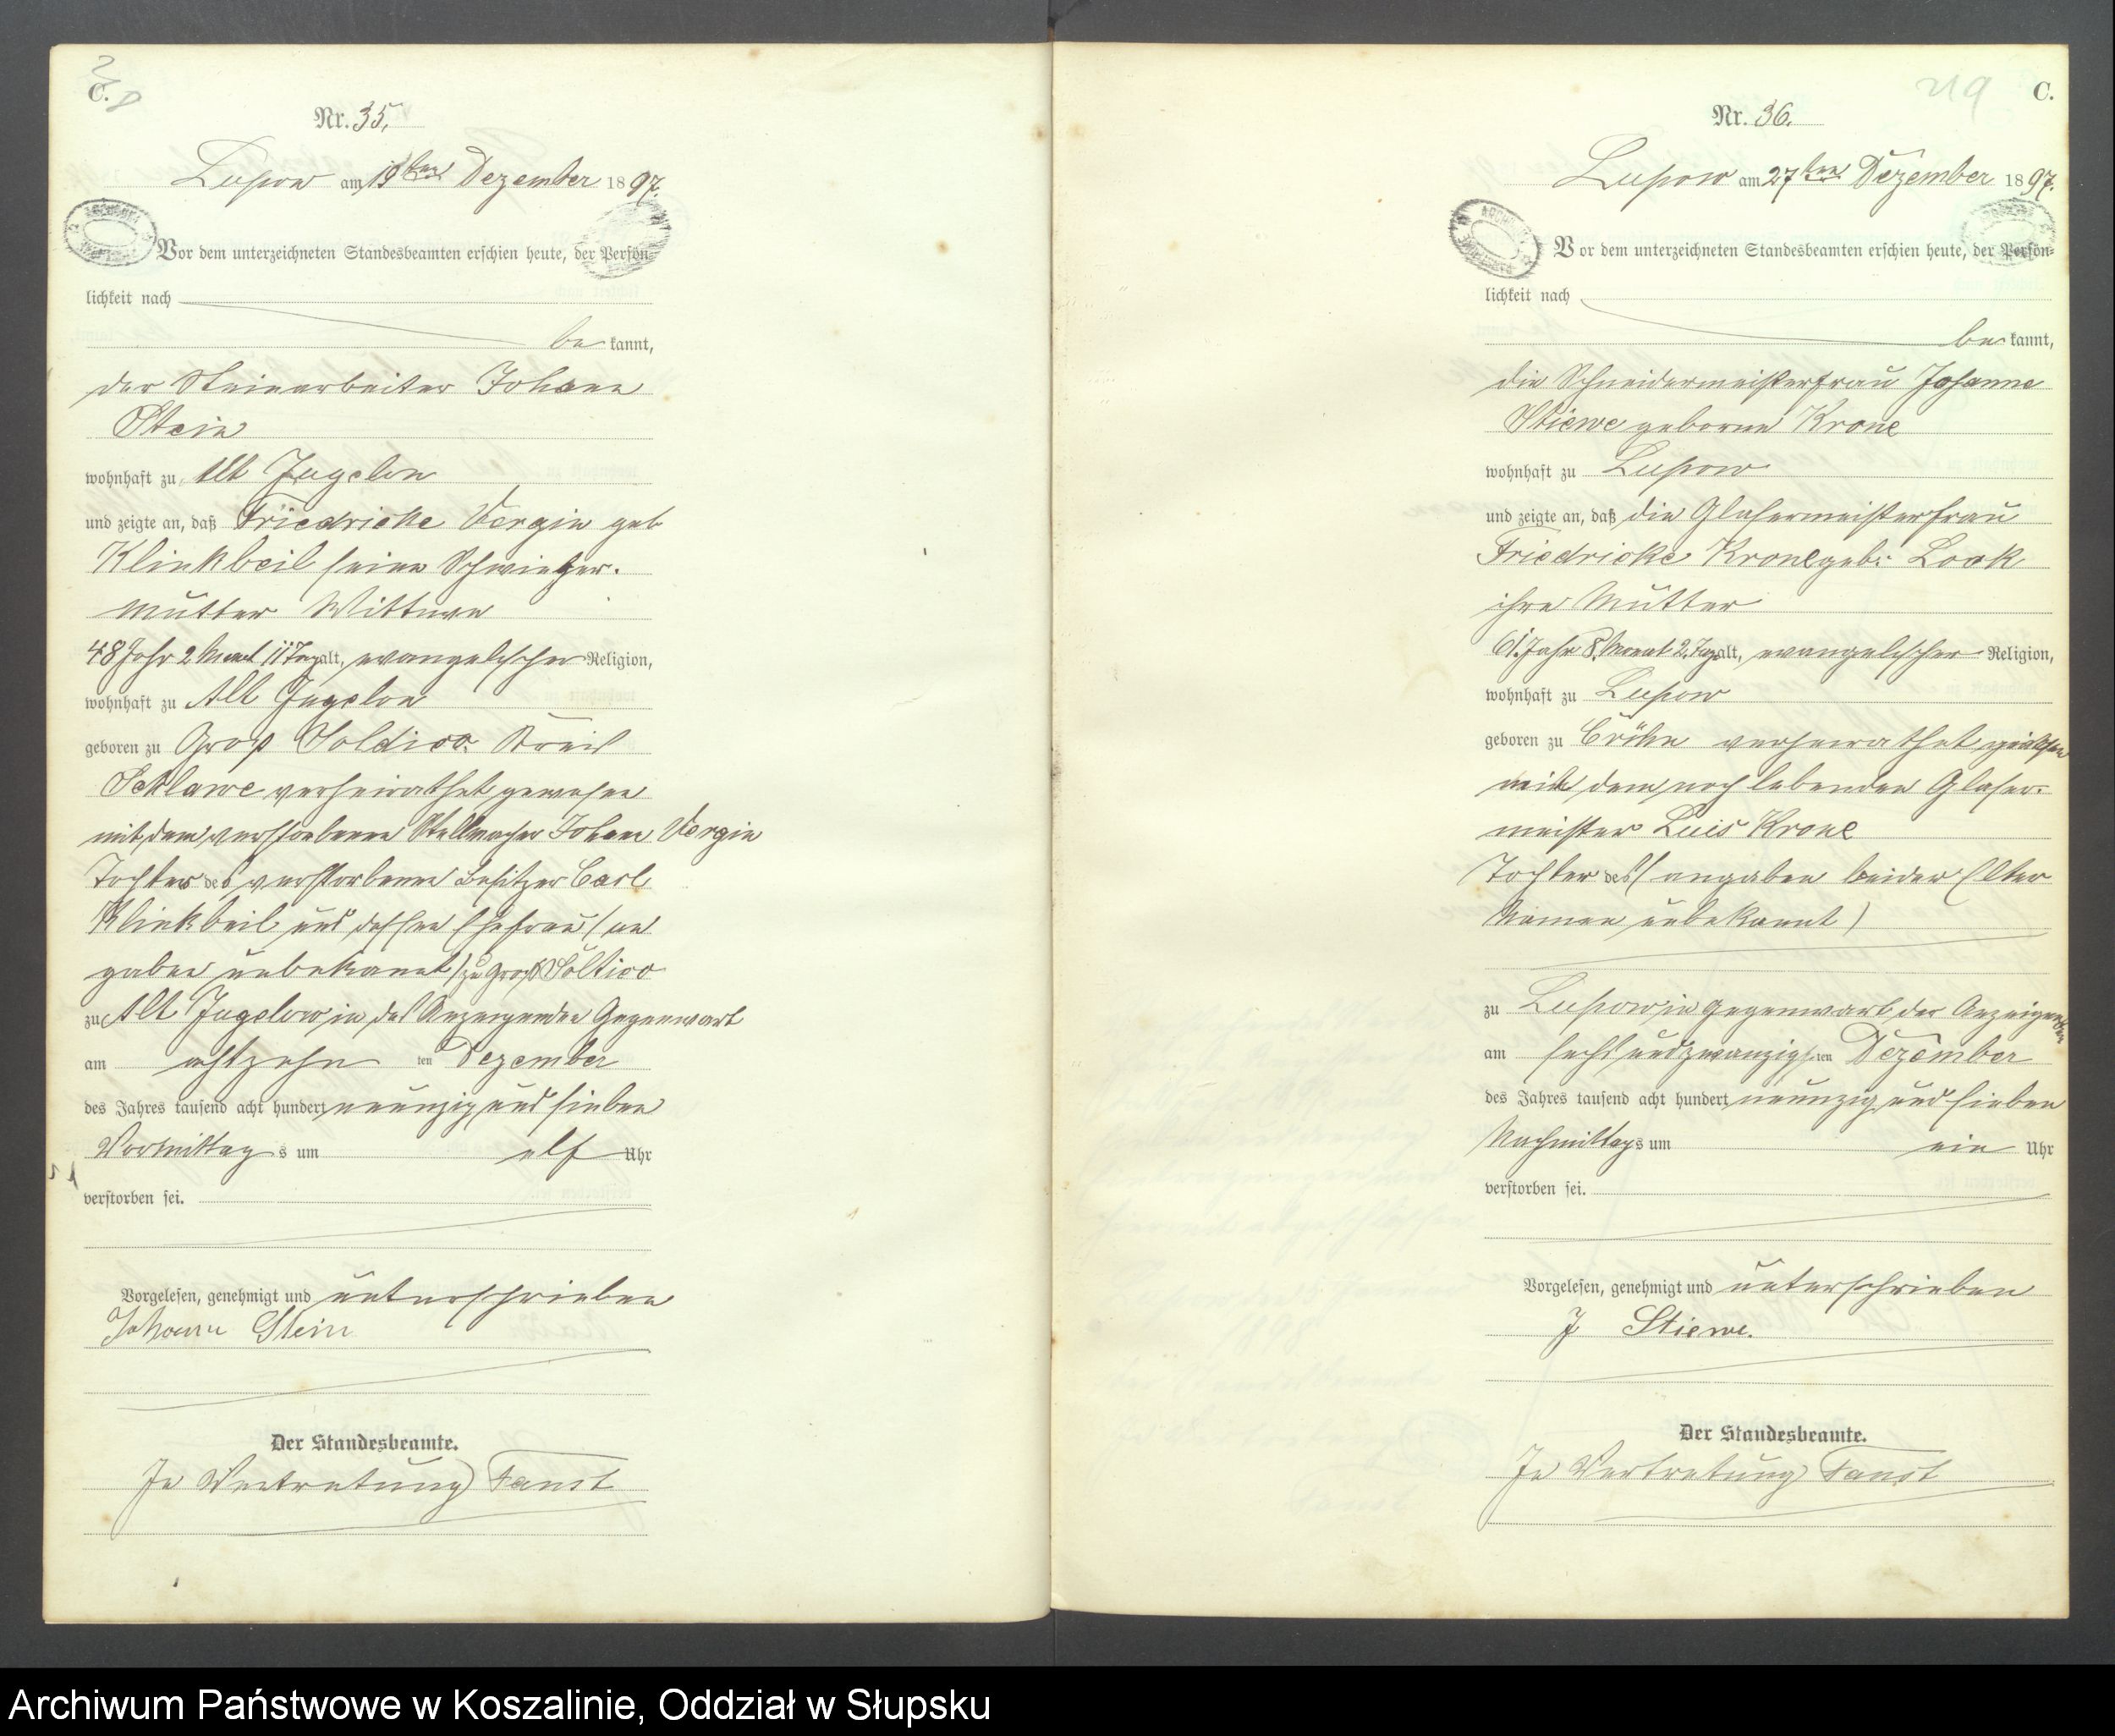 C.
Nr. 35.
Lupow am 19ten Dezember 1897.
Vor dem unterzeichneten Standesbeamten erschien heute, der Persön-
lichkeit nach
be kannt,
der Steinarbeiter Johann
Stein
wohnhaft zu Alt Jugelow
und zeigte an, daß Friedricke Vergin geb
Klinkbeil seine Schwieger-
mutter Wittwe
48 Jahr 2 Monat 11 Tage alt, evangelischer Religion,
wohnhaft zu Alt Jugelow
geboren zu Groß Soldico. Kreis
Schlawe verheirathet gewesen
mit dem verstorbenen Stellmacher Johann Vergin
Tochter des verstorbenen Besitzer Carl
Klinkbeil und dessen Ehefrau (an
gaben unbekannt) zu Groß Soltico
zu Alt Jugelow in des Anzeigenden Gegenwart
am achtzehn ten Dezember
des Jahres tausend acht hundert neunzig und sieben
Vormittag s um elf Uhr
verstorben sei.
Vorgelesen, genehmigt und unterschrieben
Johann Stein
Der Standesbeamte.
In Vertretung Faust
219 C.
Nr. 36.
Lupow am 27ten Dezember 1897.
Vor dem unterzeichneten Standesbeamten erschien heute, der Persön-
lichkeit nach
be kannt,
die Schneidermeisterfrau Johanne
Stiewe geborne Krone
wohnhaft zu Lupow
und zeigte an, daß die Glasermeisterfrau
Friedricke Krone geb. Look
ihre Mutter
61 Jahr 8 Monat 2 Tage alt, evangelischer Religion,
wohnhaft zu Lupow
geboren zu verheirathet gewesen
mit dem noch lebenden Glaser-
meister Luis Krone
Tochter des (angaben beider Elter
Namen unbekannt)
zu Lupow in Gegenwart der Anzeigenden
am sechsundzwanzigs ten Dezember
des Jahres tausend acht hundert neunzig und sieben
Nachmittags um ein Uhr
verstorben sei.
Vorgelesen, genehmigt und unterschrieben
J Stiewe.
Der Standesbeamte.
In Vertretung Faust
Archiwum Państwowe w Koszalinie, Oddział w Słupsku